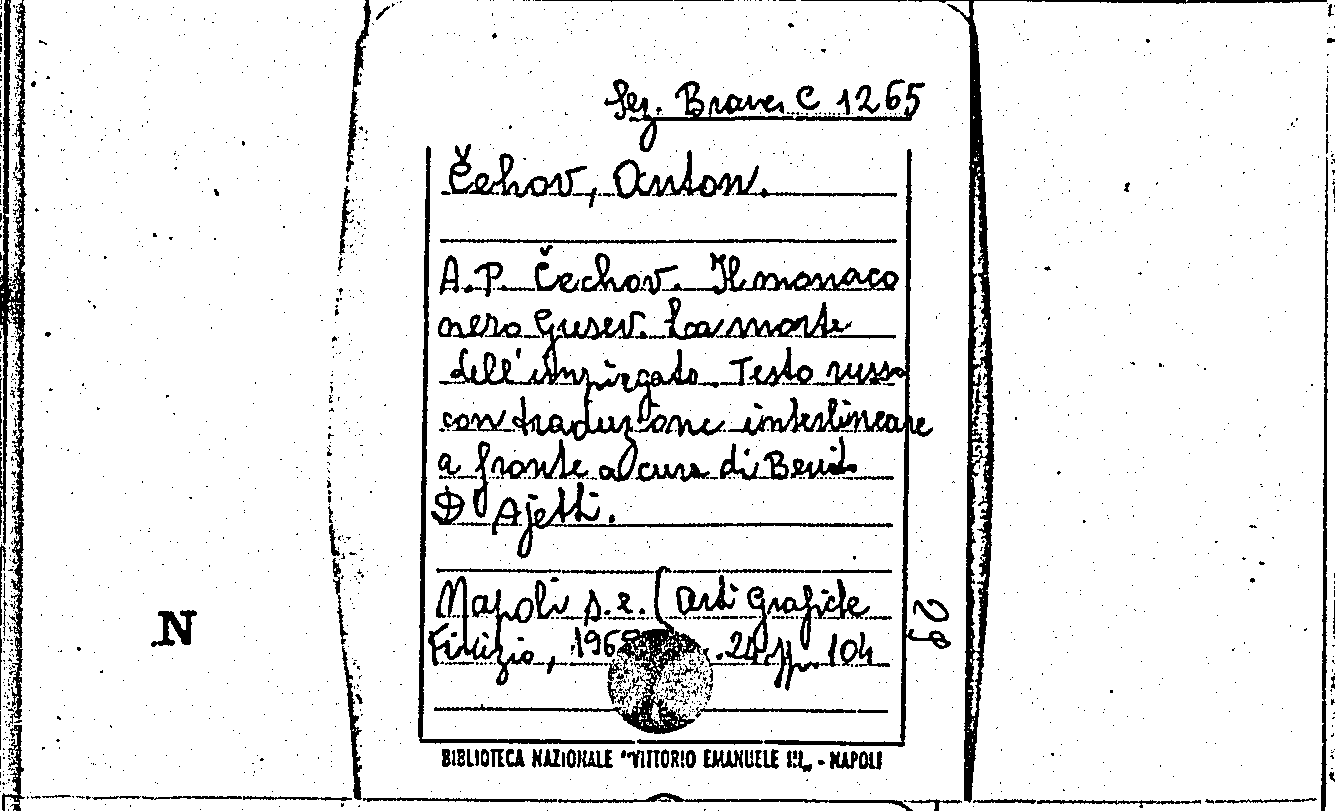 Sez. Branc. C 1265
Čehov, Anton.
A.P. Čechov. Il monaco
nero Gusev. La morte
dell'impiegato. Testo russo
con traduzione interlineare
a fronte a cura di Benito
D'Ajetti.
Napoli s.e. (Arti Grafiche
, 196 .24 pp. 104
29
N
BIBLIOTECA NAZIONALE "VITTORIO EMANUELE III„ - NAPOLI